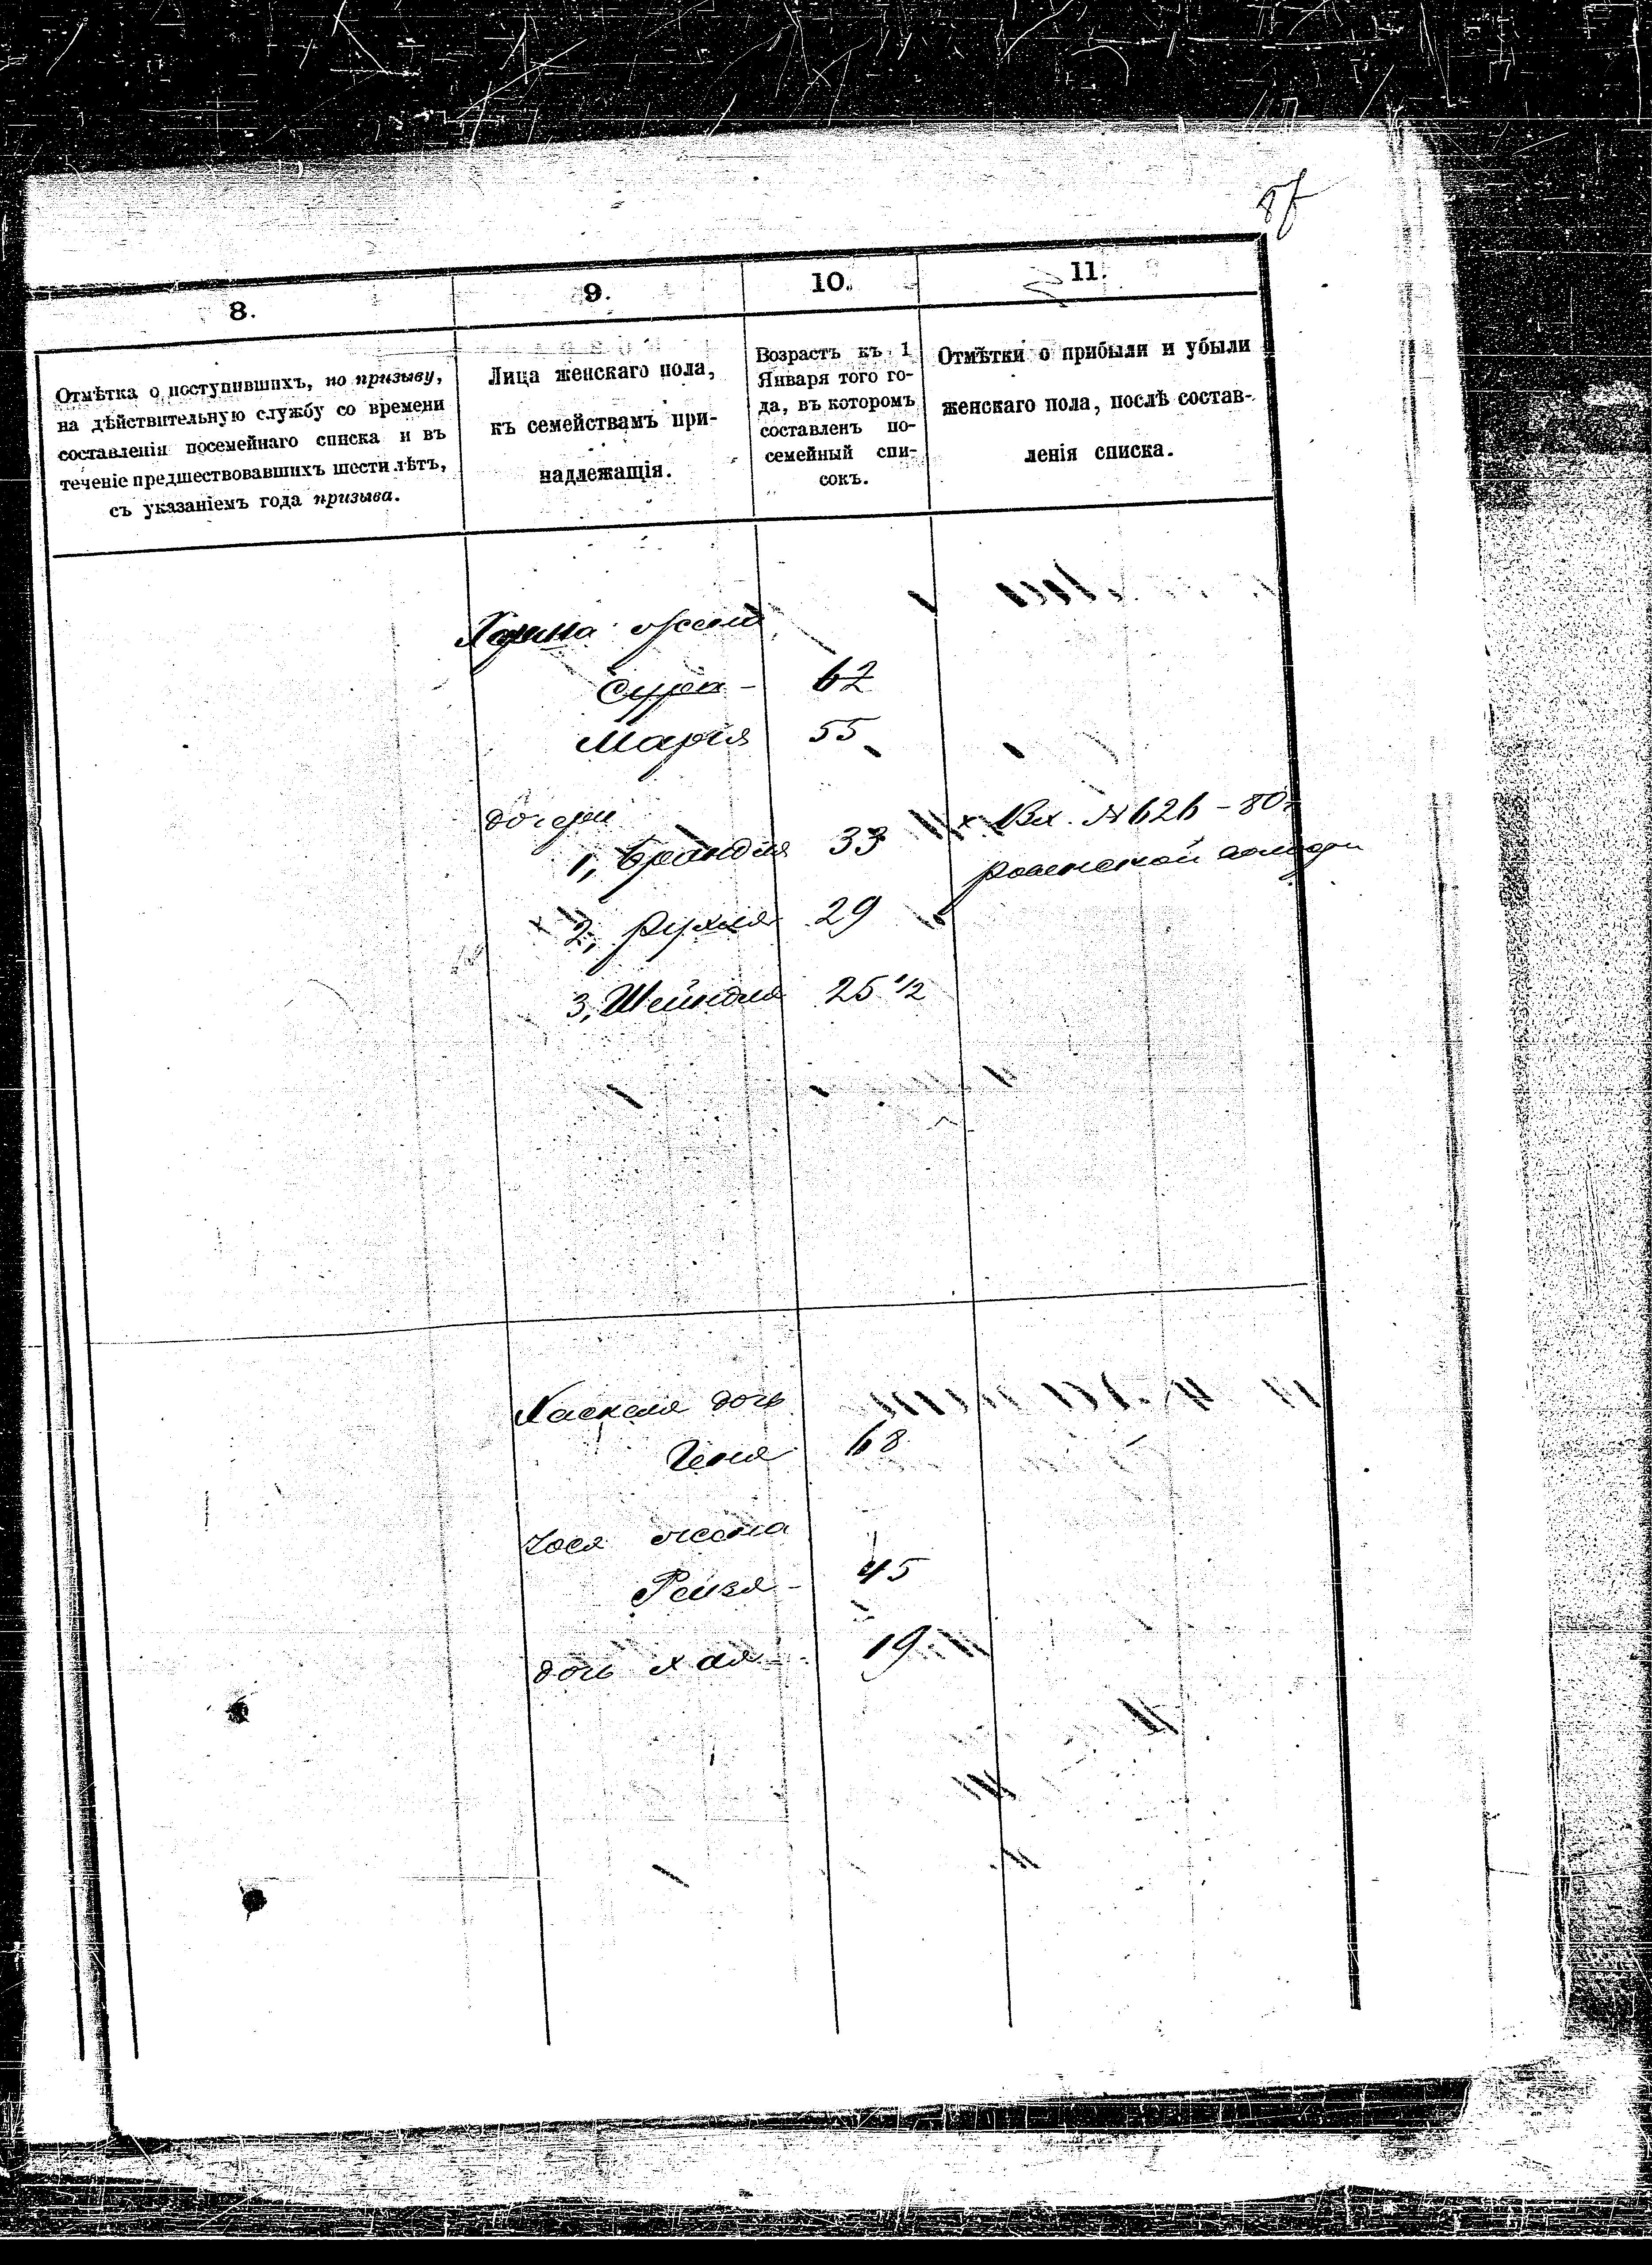 8.
9.
10.
11.
Отмѣтка о поступившихъ, по призыву,
на дѣйствительную службу со времени
составленія посемейнаго списка и въ
теченіе предшествовавшихъ шести лѣтъ,
съ указаніемъ года призыва.
Лица женскаго пола,
къ семействамъ при-
надлежащія.
Возрастъ къ 1
Января того го-
да, въ которомъ
составленъ по-
семейный спи-
сокъ.
Отмѣтки о прибыли и убыли
женскаго пола, послѣ состав-
ленія списка.
жена
Сура - 62
Марія 55
дочери
1, Брандля 33 х Вх. № 626 - 80 г
х 2, Рухля 29
3, Шейндля 25 1/2
Хаскеля дочь
Геня 68
Іося жена
Рейзя - 45
дочь Хая - 19